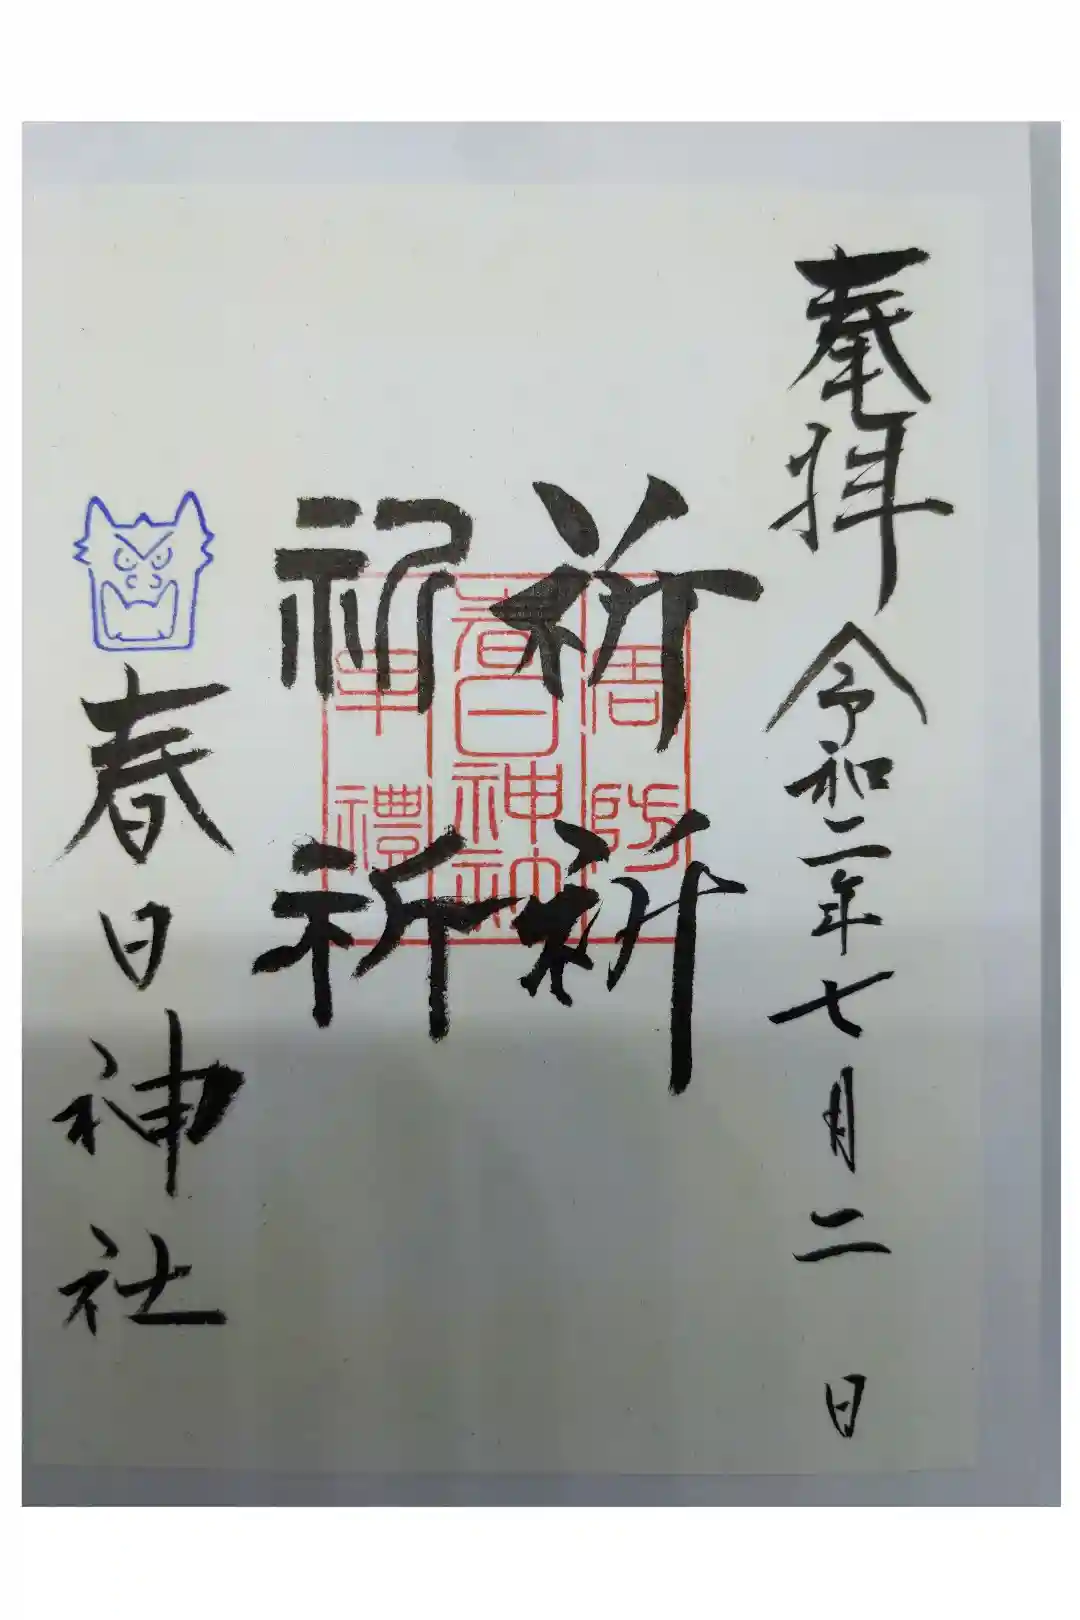 奉拝 令和二年七月二日
祈祈
祈祈
周防
春日神社
牟禮
春日神社